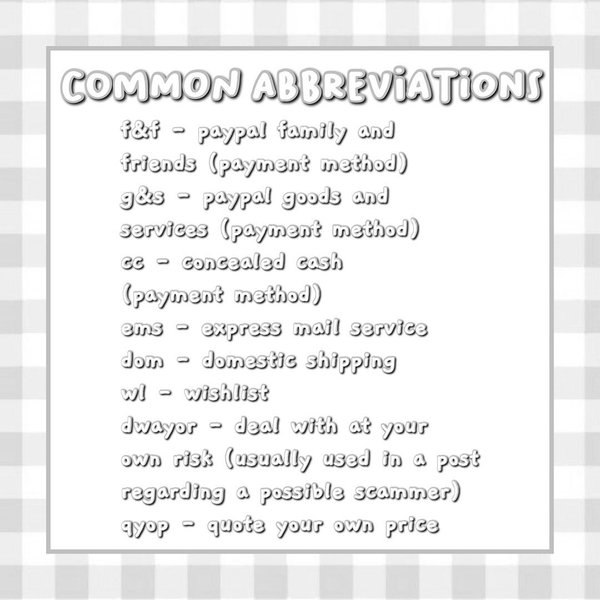 COMMON ABBREViATiONS
f&f - paypal family and
friends (payment method)
g&s - paypal goods and
services (payment method)
cc - concealed cash
(payment method)
ems - express mail service
dom - domestic shipping
wl - wishlist
dwayor - deal with at your
own risk (usually used in a post
regarding a possible scammer)
qyop - quote your own price